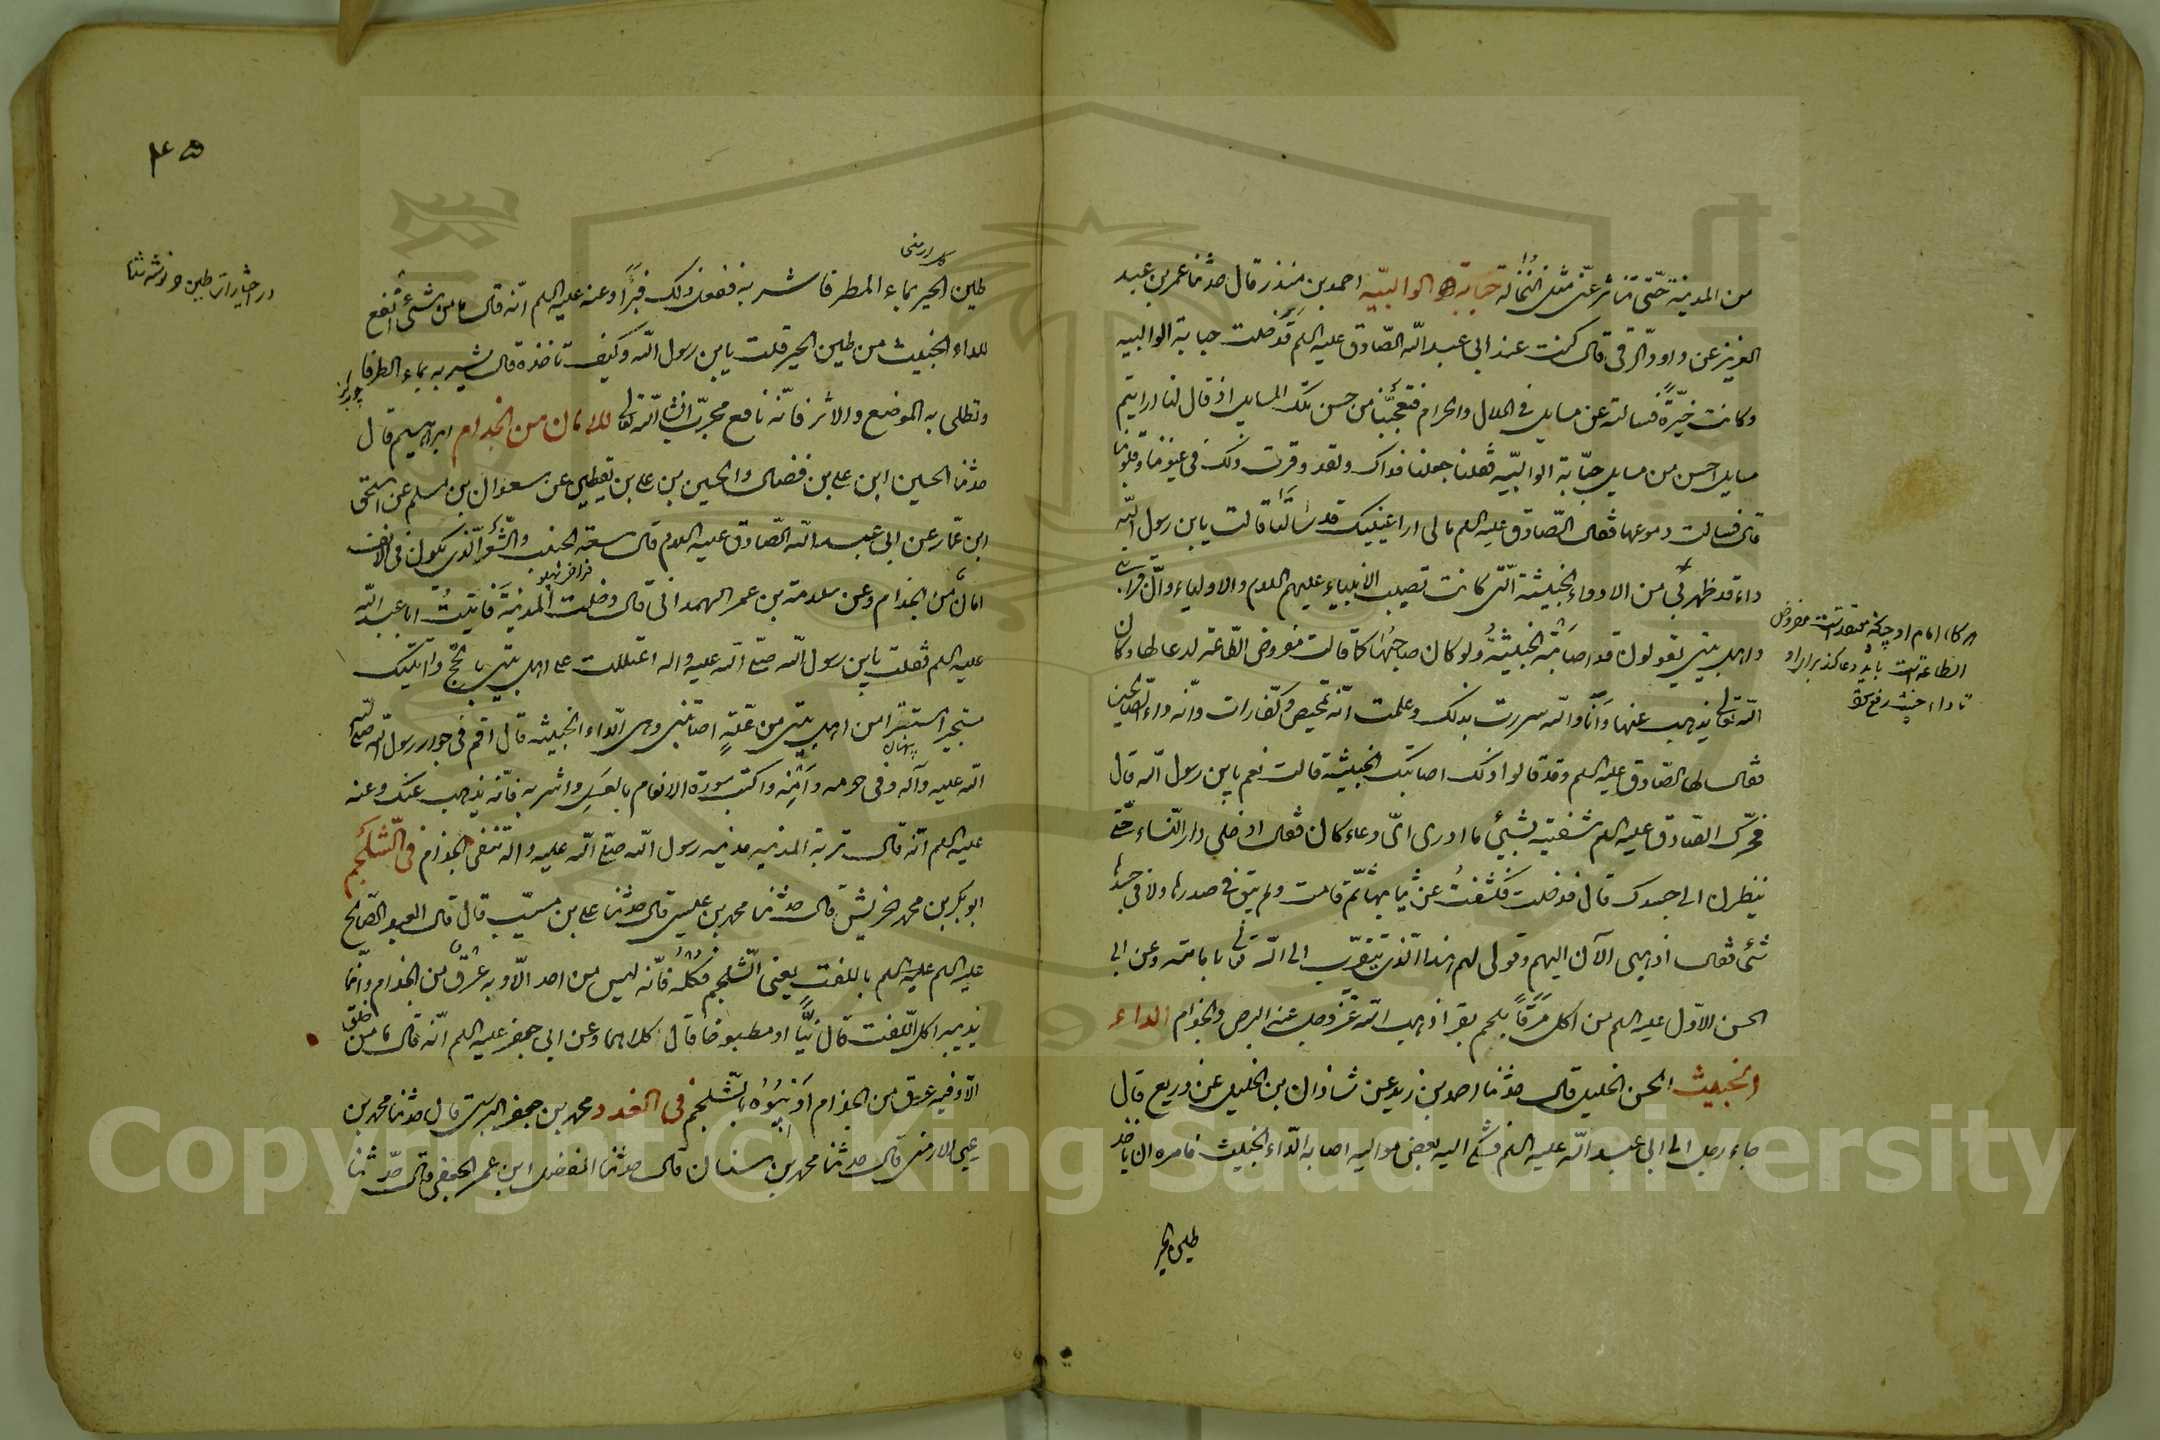 من المدينة حتّى تناثر عنّى مثل النخالة حبّابة الوالبيّه احمد بن منذر قال حدثنا عمر بن عبد
العزيز عن داود الرقى قال كنت عند ابى عبد الله الصّادق عليه السلم فدخلت حبابة الوالبيه
وكانت خيّرة فسالته عن مسايل فى الحلال والحرام فتعجّبنا من حسن تلك المسايل اذ قال لنا ارايتم
مسايل احسن من مسايل حبّابة الوالبيّه فقلنا جعلنا فداك ولقد وقرت ذلك فى عيوننا وقلوبنا
قال فسالت دموعها فقال الصّادق عليه السلم مالى ارا عينيك قد سالتا قالت يابن رسول الله
داء قد ظهر بى من الادواء الخبيثة الّتى كانت تصيب الانبياء عليهم السلام والاولياء وانّ قرابتى
واهل بيتى يقولون قد اصابته الخبيثة ولو كان صاحبها كما قالت مفروض الطّاعة لدعا لها وكان
الله تعالى يذهب عنها وانّا والله سررت بذلك وعلمت انّه تمحيص وكفّارات وانّه داء الصّالحين
فقال لها الصّادق عليه السلم وقد قالوا ذلك اصابتك الخبيثة قالت نعم يابن رسول الله قال
فحرّك الصّادق عليه السلم شفتيه بشيئ ما ادرى اىّ دعاء كان فقال ادخلى دار النّساء حتّى
تنظرن الى جسدك قال فدخلت فكشفت عن ثيابها ثمّ قامت ولم يبق فى صدرها ولا فى جسدها
شئ فقال اذهبى الآن اليهم وقولى لهم هذا الّذى يتقرّب الى الله تعالى بامامته وعن ابى
الحسن الاوّل عليه السلم من اكل مرقا بلحم بقر اذهب الله عزّ وجل عنه البرص والجذام الداء
الخبيث الحسن الخليل قال حدثنا احمد بن زيد عن شاذان بن الخليل عن ذريع قال
جاء رجل الى ابى عبد الله عليه السلم فشكى اليه بعض مواليه اصابه الدّاء الخبيث فامره ان ياخذ
طين الحير
هر كاه امام او چنانكه معتقد است مفروض
الطاعة است بايد دعا كند براى او
تا داء خبيث رفع شود
٤٥
در اختيارات طين
كل ارمنى
طين الحير بماء المطر فاشربه ففعل ذلك فبرأ وعنه عليه السلم انّه قال ما من شئ انفع
للداء الخبيث من طين الحير قلت يابن رسول الله وكيف تاخذه قال تشربه بماء المطر
وتطلى به الموضع والاثر فانّه نافع مجرّب انشا الله تعالى للامان من الجذام ابراهيم قال
حدثنا الحسين ابن على بن فضال والحسين بن على بن يقطين عن سعدان بن مسلم عن اسحق
ابن عمّار عن ابى عبد الله الصّادق عليه السلام قال سعة الجنب والشّعر الّذى يكون فى الانف
فراخى پهلو
امان من الجذام وعن سلامة بن عمر الهمدانى قال دخلت المدينة فاتيت ابا عبد الله
عليه السلم فقلت يابن رسول الله صلّى الله عليه واله اعتللت على اهل بيتى بالحجّ واتيتك
مستجير استترا من اهل بيتى من علّةٍ اصابتنى وهى الدّاء الخبيثه قال اقم فى جوار رسول الله صلّى
پنهان
الله عليه وآله وفى حرمه وامنه واكتب سورة الانعام بالعسل واشربه فانّه يذهب عنك وعنه
عليه السلم انّه قال تربة المدينه مدينه رسول الله صلّى الله عليه واله تنفى الجذام فى الشّلجم
ابو بكر بن محمد الخريش قال حدثنا محمد بن عيسى قال حدثنا على بن مسيّب قال قال العبد الصّالح
عليه السلم عليكم باللفت يعنى الشّلجم فكله فانّه ليس من احد الّا وبه عرق من الجذام وانّما
يذيبه اكل اللّفت قال نيّا او مطبوخا قال كلاهما وعن ابى جعفر عليه السلم انّه قال ما من خلق
الّا وفيه عرق من الجذام اذيبوه بالشّلجم فى الغدد محمد بن جعفر البرسى قال حدثنا محمد بن
يحيى الارمنى قال حدثنا محمد بن سنان قال حدثنا المفضل ابن عمر الجعفى قال حدّثنا
Copyright © King Saud University